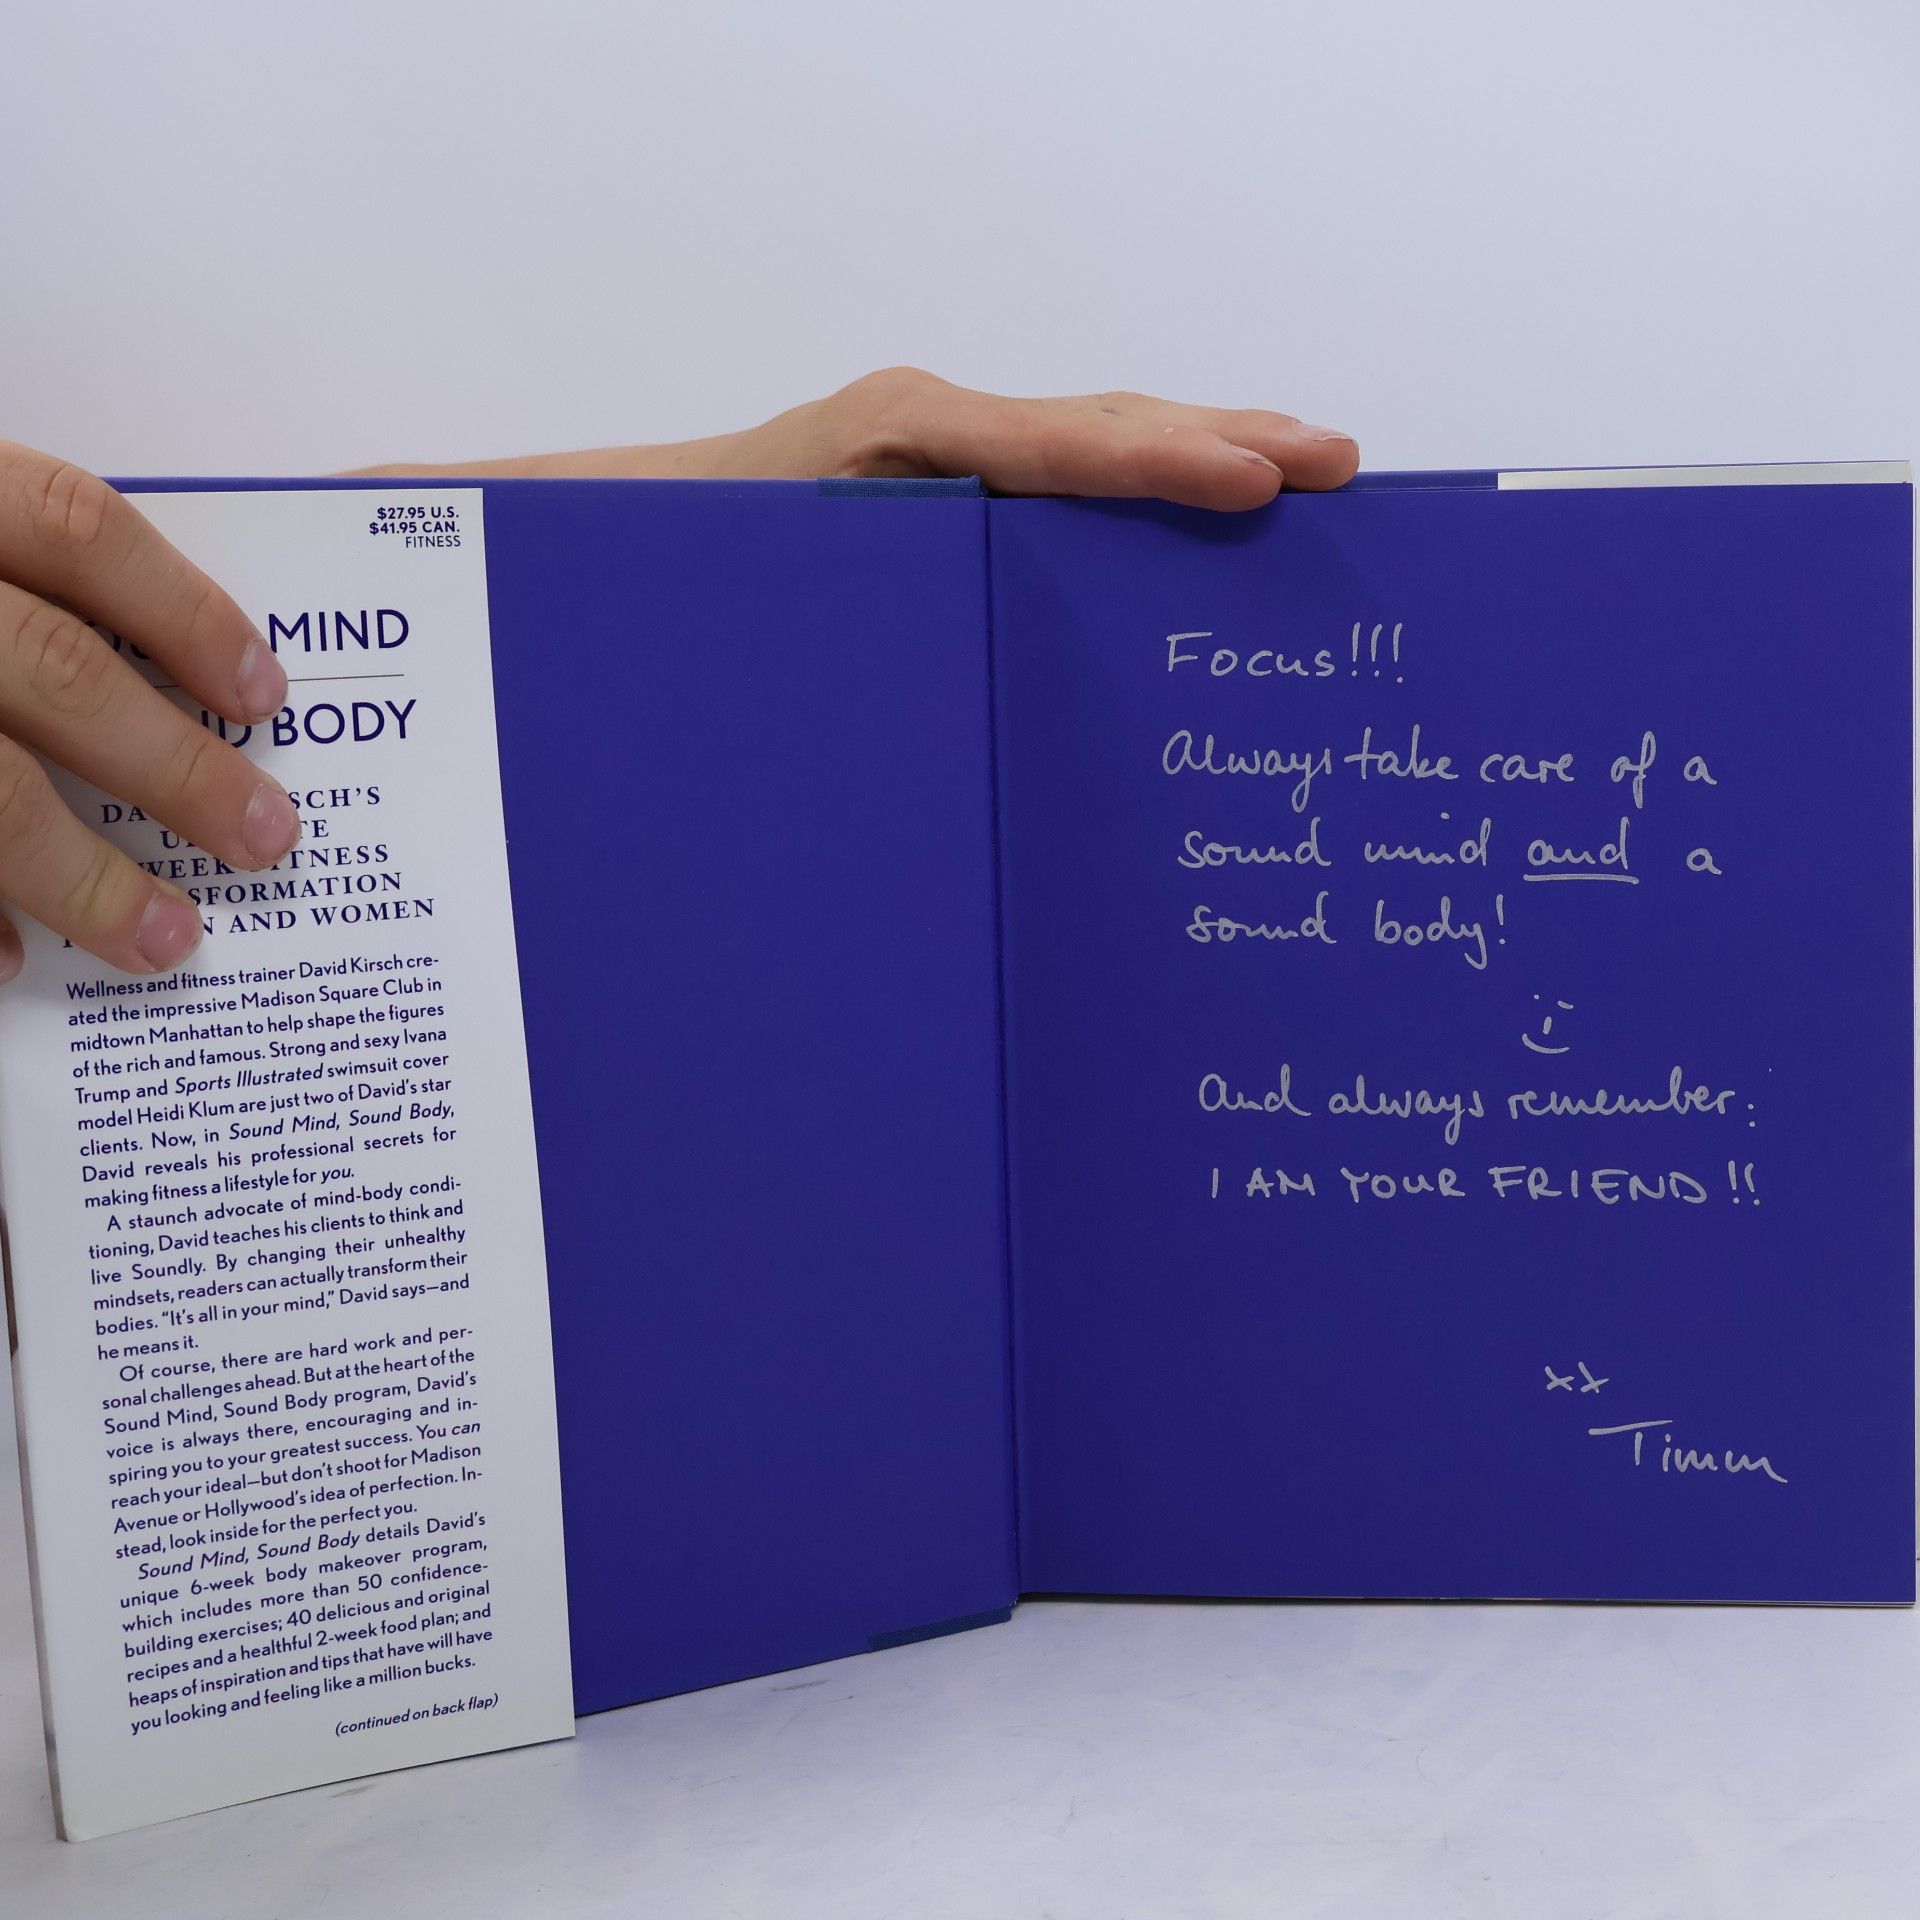 $27.95 U.S.
$41.95 CAN.
FITNESS
MIND
BODY
WEEK
AND WOMEN
Wellness and fitness trainer David Kirsch cre-
ated the impressive Madison Square Club in
midtown Manhattan to help shape the figures
of the rich and famous. Strong and sexy Ivana
Trump and Sports Illustrated swimsuit cover
model Heidi Klum are just two of David's star
clients. Now, in Sound Mind, Sound Body,
David reveals his professional secrets for
making fitness a lifestyle for you.
A staunch advocate of mind-body condi-
tioning, David teaches his clients to think and
live Soundly. By changing their unhealthy
mindsets, readers can actually transform their
bodies. “It's all in your mind,” David says—and
he means it.
Of course, there are hard work and per-
sonal challenges ahead. But at the heart of the
Sound Mind, Sound Body program, David's
voice is always there, encouraging and in-
spiring you to your greatest success. You can
reach your ideal—but don't shoot for Madison
Avenue or Hollywood's idea of perfection. In-
stead, look inside for the perfect you.
Sound Mind, Sound Body details David's
unique 6-week body makeover program,
which includes more than 50 confidence-
building exercises; 40 delicious and original
recipes and a healthful 2-week food plan; and
heaps of inspiration and tips that have will have
you looking and feeling like a million bucks.
(continued on back flap)
Focus!!!
Always take care of a
sound mind and a
sound body!
And always remember:
I AM YOUR FRIEND!!
xx
Timm